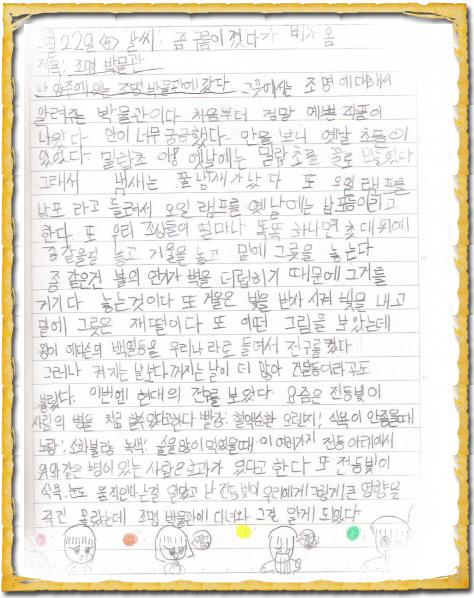 월 22일 (토) 날씨: 좀 구름이 꼈다가 비가 옴
제목: 조명 박물관
난 양주에 있는 조명 박물관에 갔다 그곳에서는 조명에 대해서
알려주는 박물관이다 처음부터 정말 예쁜 작품이
나왔다 안이 너무 궁금했다. 안을 보니 옛날 초들이
있었다. 밀랍초 아항 옛날에는 밀랍초를 꿀로 만들었다
그래서 냄새는 꿀 냄새가 났다 또 오일 램프를
남포 라고 들려서 오일 램프를 옛날에는 남포등이라고
한다. 또 우리 조상들이 얼마나 똑똑 하냐면 촛대 위에
종같은걸 놓고 거울을 놓고 밑에 그릇을 놓는다
종 같은건 불의 연기가 벽을 더럽히기 때문에 그거를
거기다 놓는것이다 또 거울은 빛을 반사 시켜 빛을 내고
밑에 그릇은 재떨이다 또 어떤 그림을 보았는데
왕이 에디슨의 백열등을 우리나라로 들여서 전구를 켰다
그러나 켜지는 날보다 꺼지는 날이 더 많아 건달등이라고도
불렀다. 이번엔 현대의 전등을 보았다 요즘은 전등빛이
사람의 병을 치료 할 수 있다고 한다 빨강: 혈액순환 오렌지: 식욕이 안좋을때
노랑: 소화불량 녹색: 술을 많이 먹었을때 이 여러가지 전등 아래에서
위와 같은 병이 있는 사람은 효과가 있다고 한다 또 전등빛이
식욕, 눈도 움직인다는걸 알았고 난 전등 빛이 우리에게 그렇게 큰 영향을
주진 몰랐는데 조명 박물관에 다녀와 그걸 알게 되었다